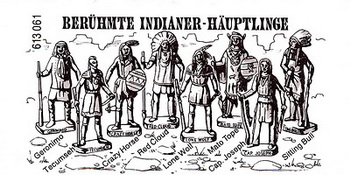 BERÜHMTE INDIANER-HÄUPTLINGE
613 061
Geronimo
Tecumseh
Crazy Horse
Red Cloud
Lone Wolf
Mato Tope
Cap. Joseph
Sitting Bull